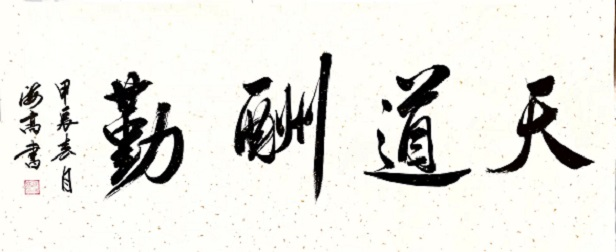 天道酬勤
甲辰春月
海高書